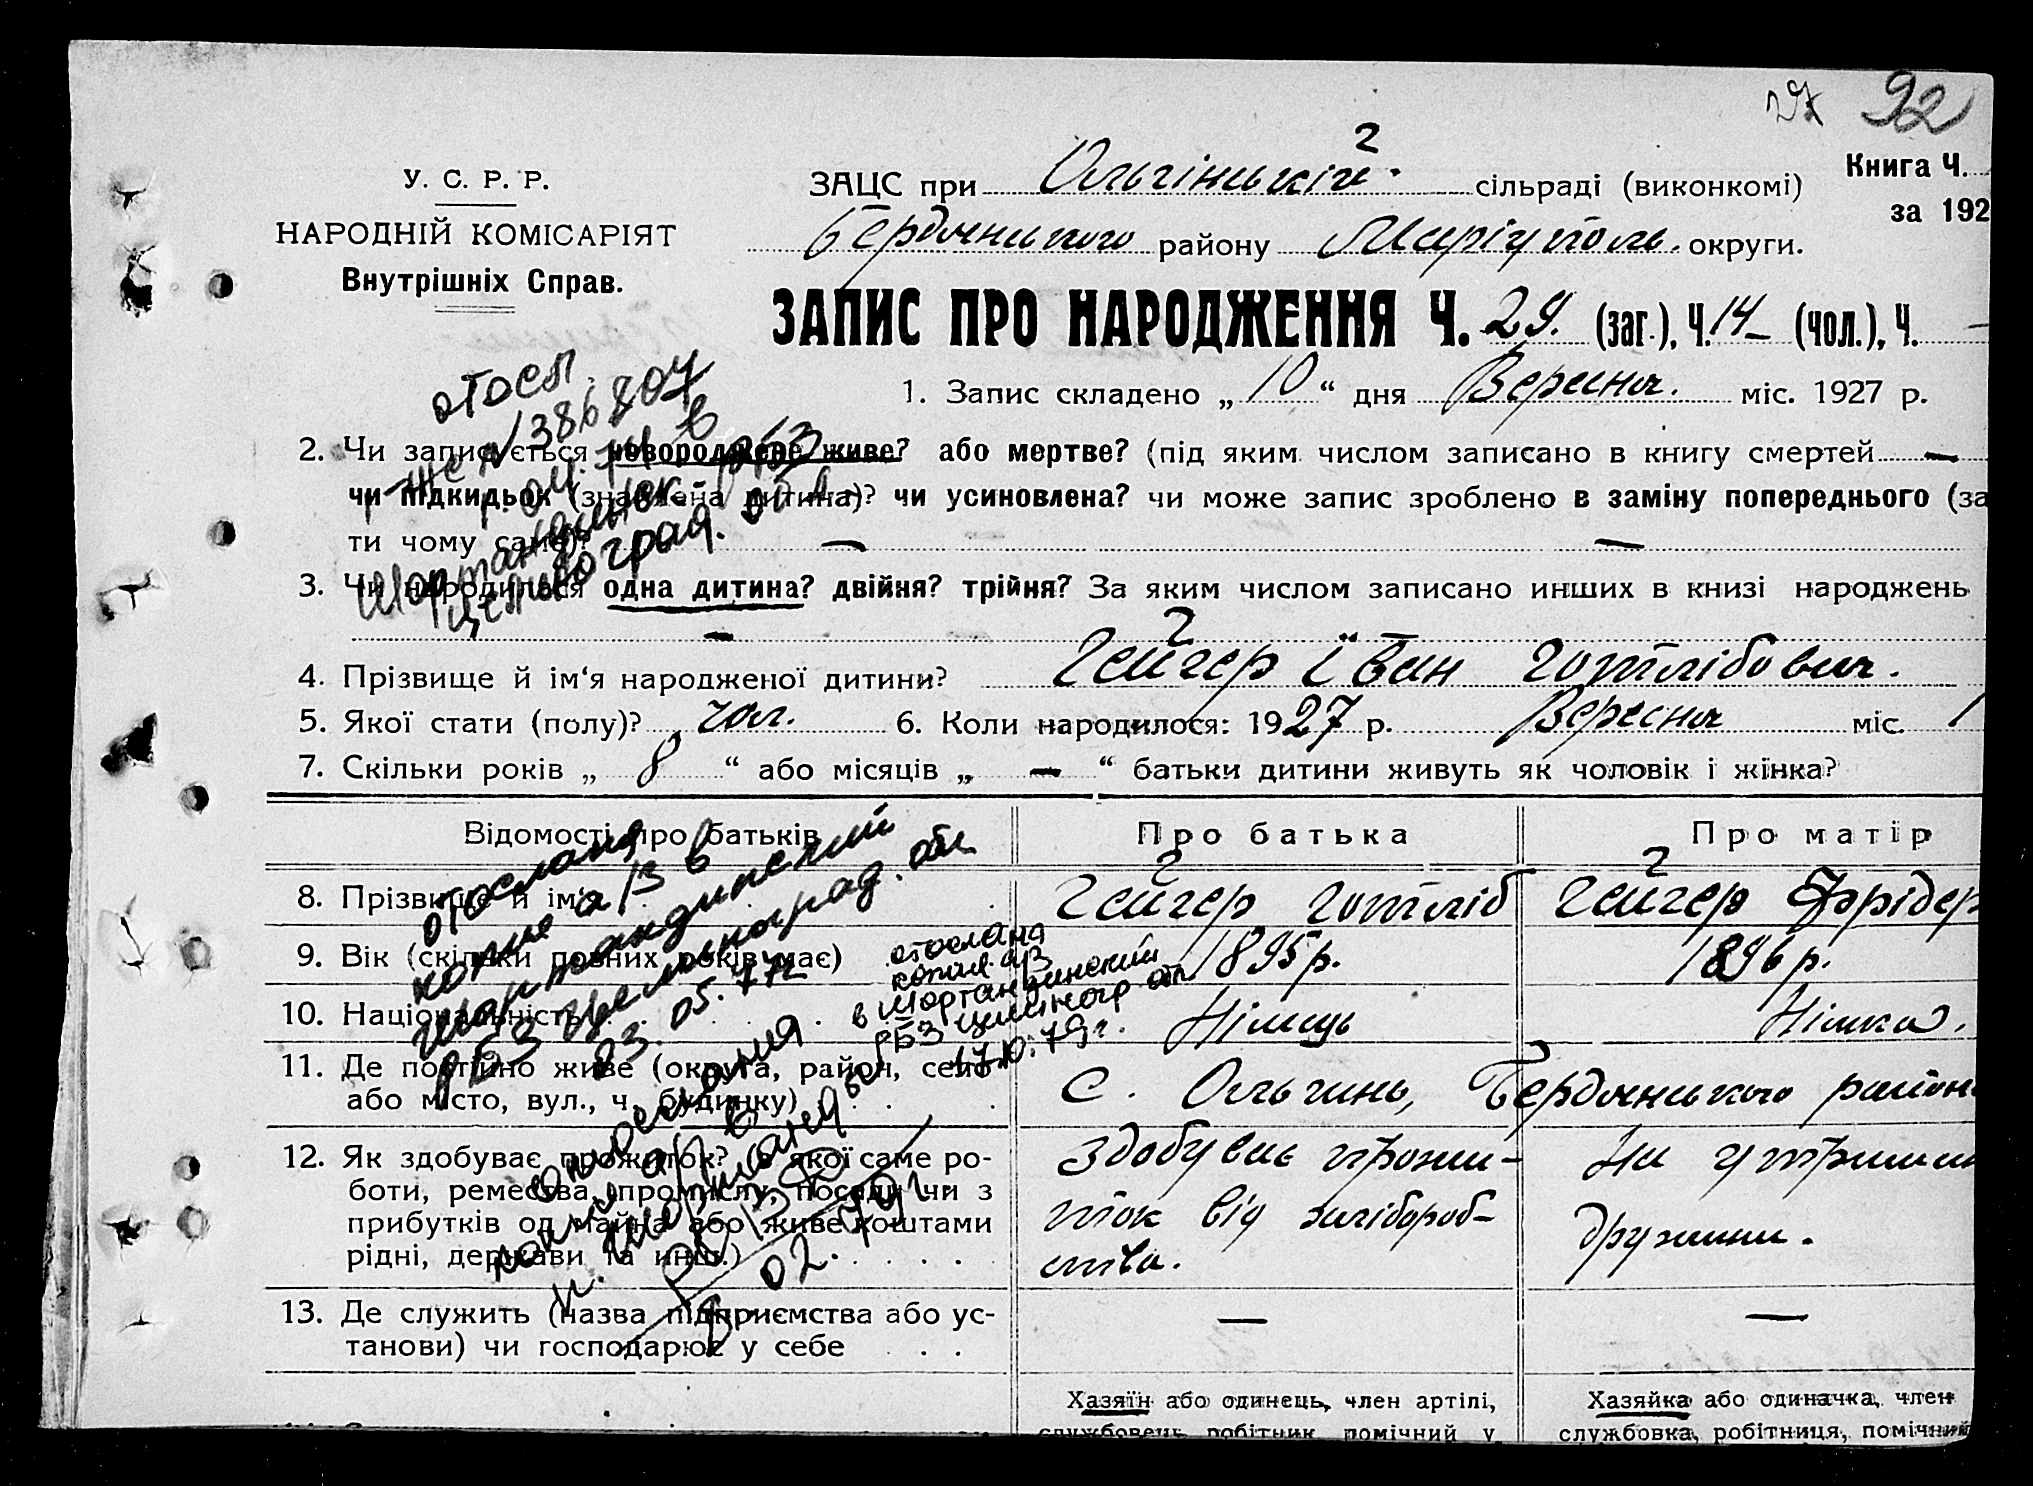 92
У. С. Р. Р.
НАРОДНІЙ КОМІСАРІЯТ
Внутрішніх Справ.
ЗАЦС при Ольгінській сільраді (виконкомі)
Книга Ч.
за 192
Бердянського району Маріуполь. округи.
ЗАПИС ПРО НАРОДЖЕННЯ Ч. 29. (заг.), Ч. 14 – (чол.), Ч. –
1. Запис складено „ 10 “ дня Вересня. міс. 1927 р.
2. Чи записується новороджене живе? або мертве? (під яким числом записано в книгу смертей –
чи підкидьок (знайдена дитина)? чи усиновлена? чи може запис зроблено в заміну попереднього (за
ти чому саме)? – –
3. Чи народилося одна дитина? двійня? трійня? За яким числом записано инших в книзі народжень
–
4. Прізвище й ім‘я народженої дитини? Гейгер Іван Готлібович.
5. Якої стати (полу)? чол. 6. Коли народилося: 1927 р. Вересня міс. 1
7. Скільки років „ 8 “ або місяців „ – “ батьки дитини живуть як чоловік і жінка?
отосл.
386804
Шортандинск. рбз
Целиноград. обл
Відомості про батьків
Про батька
Про матір
8. Прізвище й ім‘я
Гейгер Готліб
Гейгер Фрідер
9. Вік (скільки повних років має)
1895р.
1896р.
10. Національність
Німець
Німка.
11. Де постійно живе (округа, район, село
або місто, вул., ч. будинку)
С. Ольгино, Бердянського район
12. Як здобуває прожиток? З якої саме ро-
боти, ремества, промислу, посади чи з
прибутків од майна або живе коштами
рідні, держави та инш.)
Здобуває прожи-
ток від хлібороб-
ства.
На утриман
дружини.
13. Де служить (назва підприємства або ус-
танови) чи господарює у себе
–
–
отослана
копия а/з в
Шортандинский
рбз Целиноград. обл
23. 05. 77г
отослана
копия а/з
в Шортандинский
рбз Целиногр обл
17.10.79г.
отослана
копия а/з в
п. Шортанды
РБЗ
8. 02. 79г.
Хазяїн або одинець, член артілі,
службовець, робітник, помічний у
Хазяйка або одиначка, член
службовка, робітниця, помічний